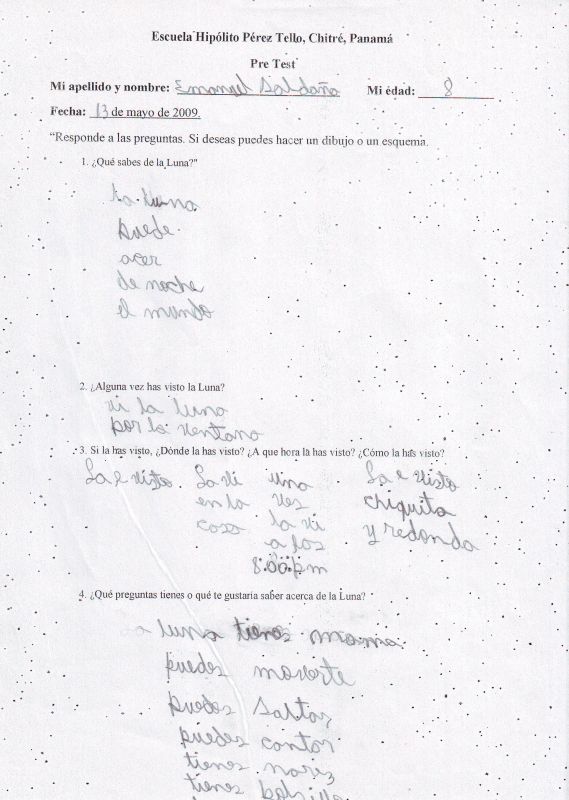 Escuela Hipólito Pérez Tello, Chitré, Panamá
Pre Test
Mi apellido y nombre: Emanuel Saldaña Mi edad: 8
Fecha: 13 de mayo de 2009.
“Responde a las preguntas. Si deseas puedes hacer un dibujo o un esquema.
1. ¿Qué sabes de la Luna?"
la luna
puede
acer
de noche
el mundo
2. ¿Alguna vez has visto la Luna?
vi la luna
por la ventana
3. Si la has visto, ¿Dónde la has visto? ¿A que hora la has visto? ¿Cómo la has visto?
La e visto La vi una La e visto
en la vez chiquita
casa la vi y redonda
a las
8:00:pm
4. ¿Qué preguntas tienes o qué te gustaría saber acerca de la Luna?
luna tienes mama
puedes moverte
puedes saltar
puedes cantar
tienes nariz
tienes